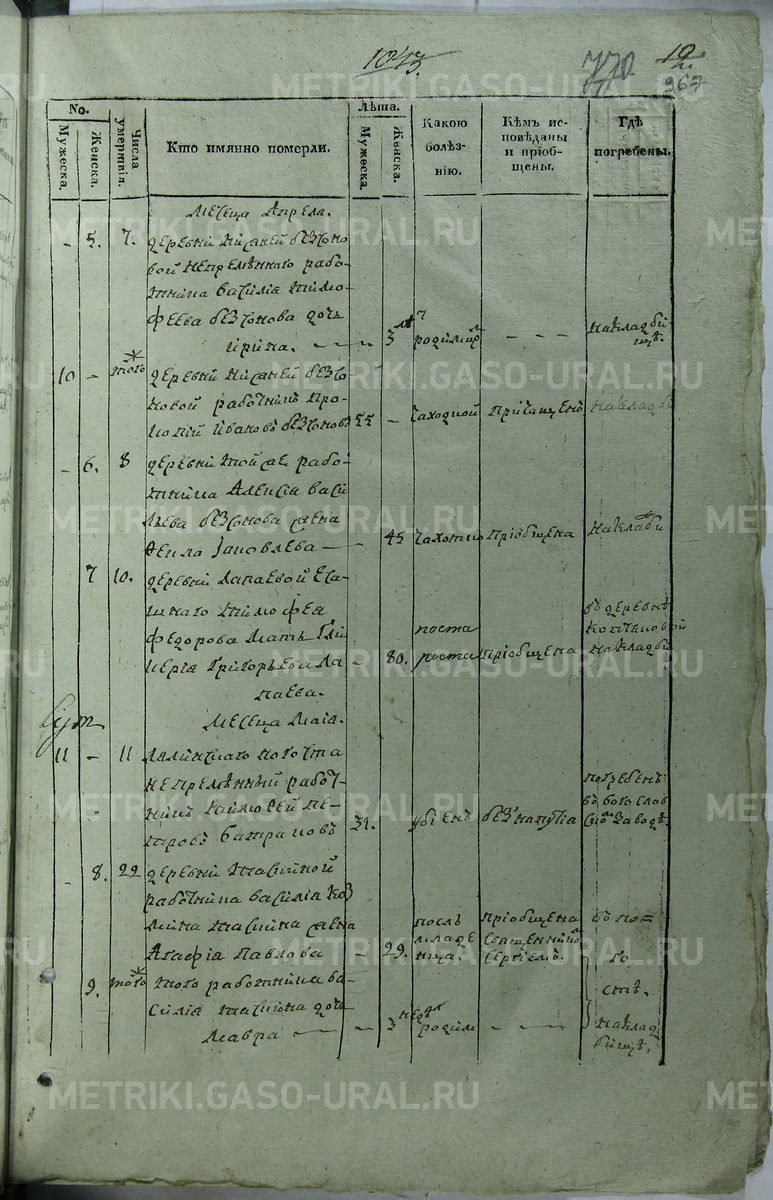 1043.
770
19
967
No.
Мужеска.
Женска.
Числа умертвія.
Кто имянно померли.
Лѣта.
Мужеска.
Женска.
Какою болѣз-
нію.
Кѣмъ ис-
повѣданы
и пріоб-
щены.
Гдѣ
погребены.
месеца Апреля.
- 5. 7. деревни Нисаней безсоно
вой непремѣннаго рабо-
тника василія тимо-
феева безсонова дочь
Ирина. - 3 родимц - - - на кладби
щѣ.
10 - того деревни Нисаней безсо
новой работникъ Про-
копій Ивановъ безсоновъ 55 - чахоткой Причащенъ на кладби
- 6. 8 деревни той же рабо-
тника Алексія васи
льева безсонова жена
Фекла Іаковлева - 45 чахоткою Пріобщена на кладби
7 10. деревни Лапаевой
тимофея
федорова мать Гли
керія Григорьева Ла
паева. - 80. по ста
рости Пріобщена въ деревнѣ
коптяковой
на кладби
месеца маія.
11 - 11 Лялинскаго погоста
непремѣнный работ-
никъ тимофей пе-
тровъ батраковъ 31. убіенъ без напутія погребенъ
въ богослов
ско заводѣ.
- 8. 22 деревни
работника василія коз
мина жена
Агафія Павлова - 29. послѣ
младе
нца. Пріобщена
священникомъ
Сергіемъ. въ по-
го
стѣ.
9. того того работника ва-
силія дочь
Мавра - 3 недѣл родим - - - на клад
бищѣ.
METRIKI.GASO-URAL.RU